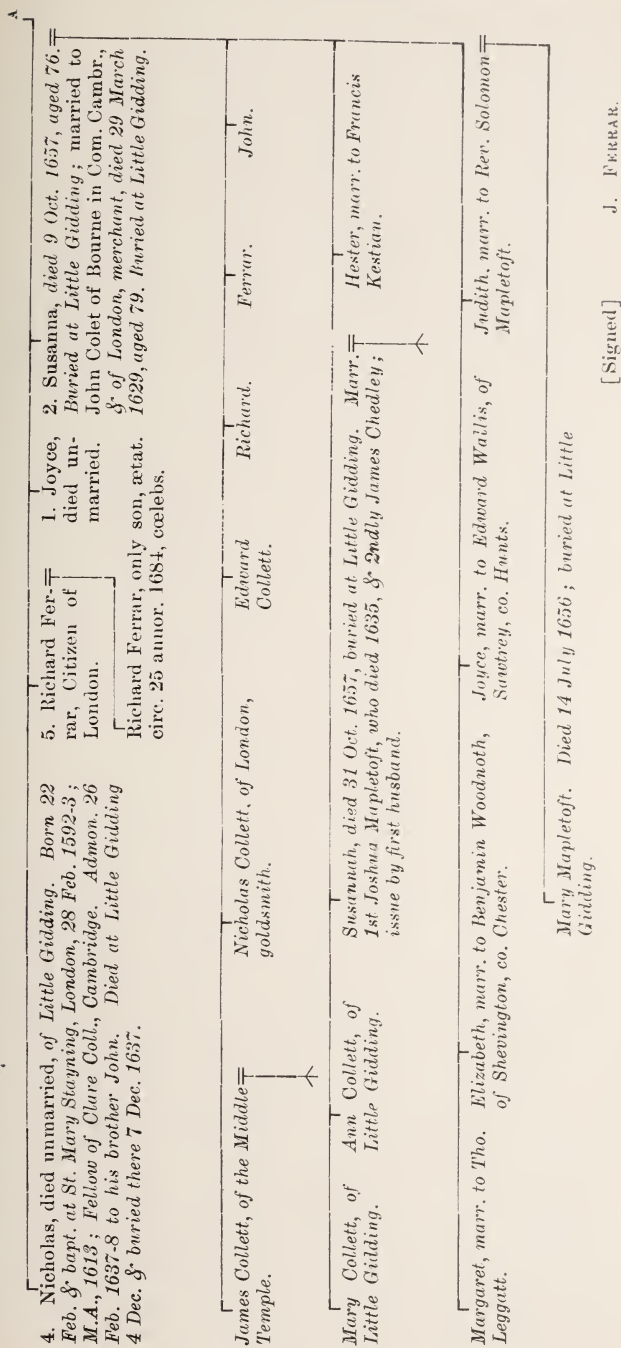 A
4. Nicholas, died unmarried, of Little Gidding. Born 22
Feb. & bapt. at St. Mary Stayning, London, 28 Feb. 1592-3;
M.A., 1613; Fellow of Clare Coll., Cambridge. Admon. 26
Feb. 1637-8 to his brother John. Died at Little Gidding
4 Dec. & buried there 7 Dec. 1637.
5. Richard Fer-
rar, Citizen of
London.
Richard Ferrar, only son, ætat.
circ. 25 annor. 1684, cœlebs.
1. Joyce,
died un-
married.
2. Susanna, died 9 Oct. 1657, aged 76.
Buried at Little Gidding; married to
John Colet of Bourne in Com. Cambr.,
& of London, merchant, died 29 March
1629, aged 79. Buried at Little Gidding.
James Collett, of the Middle
Temple.
Nicholas Collett, of London,
goldsmith.
Edward
Collett.
Richard.
Ferrar.
John.
Mary Collett, of
Little Gidding.
Ann Collett, of
Little Gidding.
Susannah, died 31 Oct. 1657, buried at Little Gidding. Marr.
1st Joshua Mapletoft, who died 1635, & 2ndly James Chedley;
issue by first husband.
Hester, marr. to Francis
Kestian.
Margaret, marr. to Tho.
Leggatt.
Elizabeth, marr. to Benjamin Woodnoth,
of Shevington, co. Chester.
Joyce, marr. to Edward Wallis, of
Sawtrey, co. Hunts.
Judith, marr. to Rev. Solomon
Mapletoft.
Mary Mapletoft. Died 14 July 1656; buried at Little
Gidding.
[Signed] J. FERRAR.